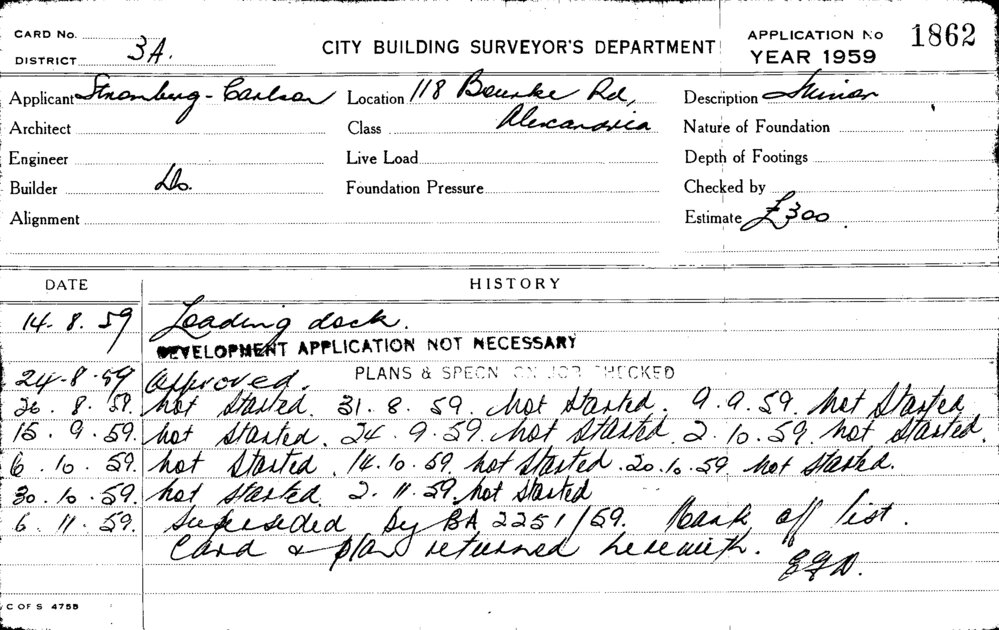 CARD No. CITY BUILDING SURVEYOR'S DEPARTMENT APPLICATION No 1862
DISTRICT 3A. YEAR 1959
Applicant Stromberg-Carlson Location 118 Bourke Rd, Description Minor
Architect Class Alexandria Nature of Foundation
Engineer Live Load Depth of Footings
Builder Do. Foundation Pressure Checked by
Alignment Estimate £300
DATE HISTORY
14.8.59 Loading dock.
DEVELOPMENT APPLICATION NOT NECESSARY
24-8-59 Approved. PLANS & SPECN ON JOB CHECKED
26.8.59. not started. 31.8.59. not started. 9.9.59. not started
15.9.59. not started. 24.9.59. not started. 2.10.59. not started.
6.10.59. not started. 14.10.59. not started. 20.10.59 not started.
30.10.59. not started 2.11.59. not started
6.11.59. Superseded by BA 2251/59. Mark off list.
Card & plan returned herewith.
C OF S 475B